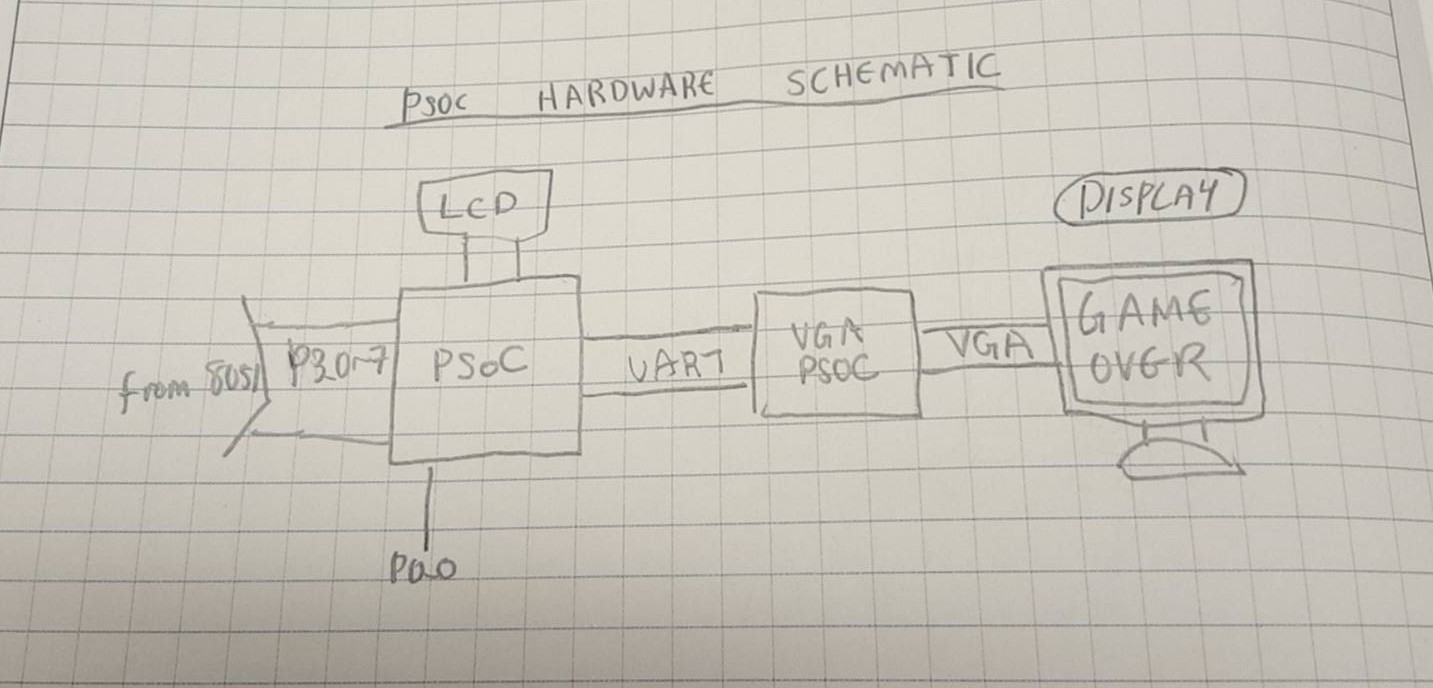 PSOC HARDWARE SCHEMATIC
LCD
DISPLAY
from 8051
P30-7
PSoC
UART
VGA
PSOC
VGA
GAME
OVER
P0.0